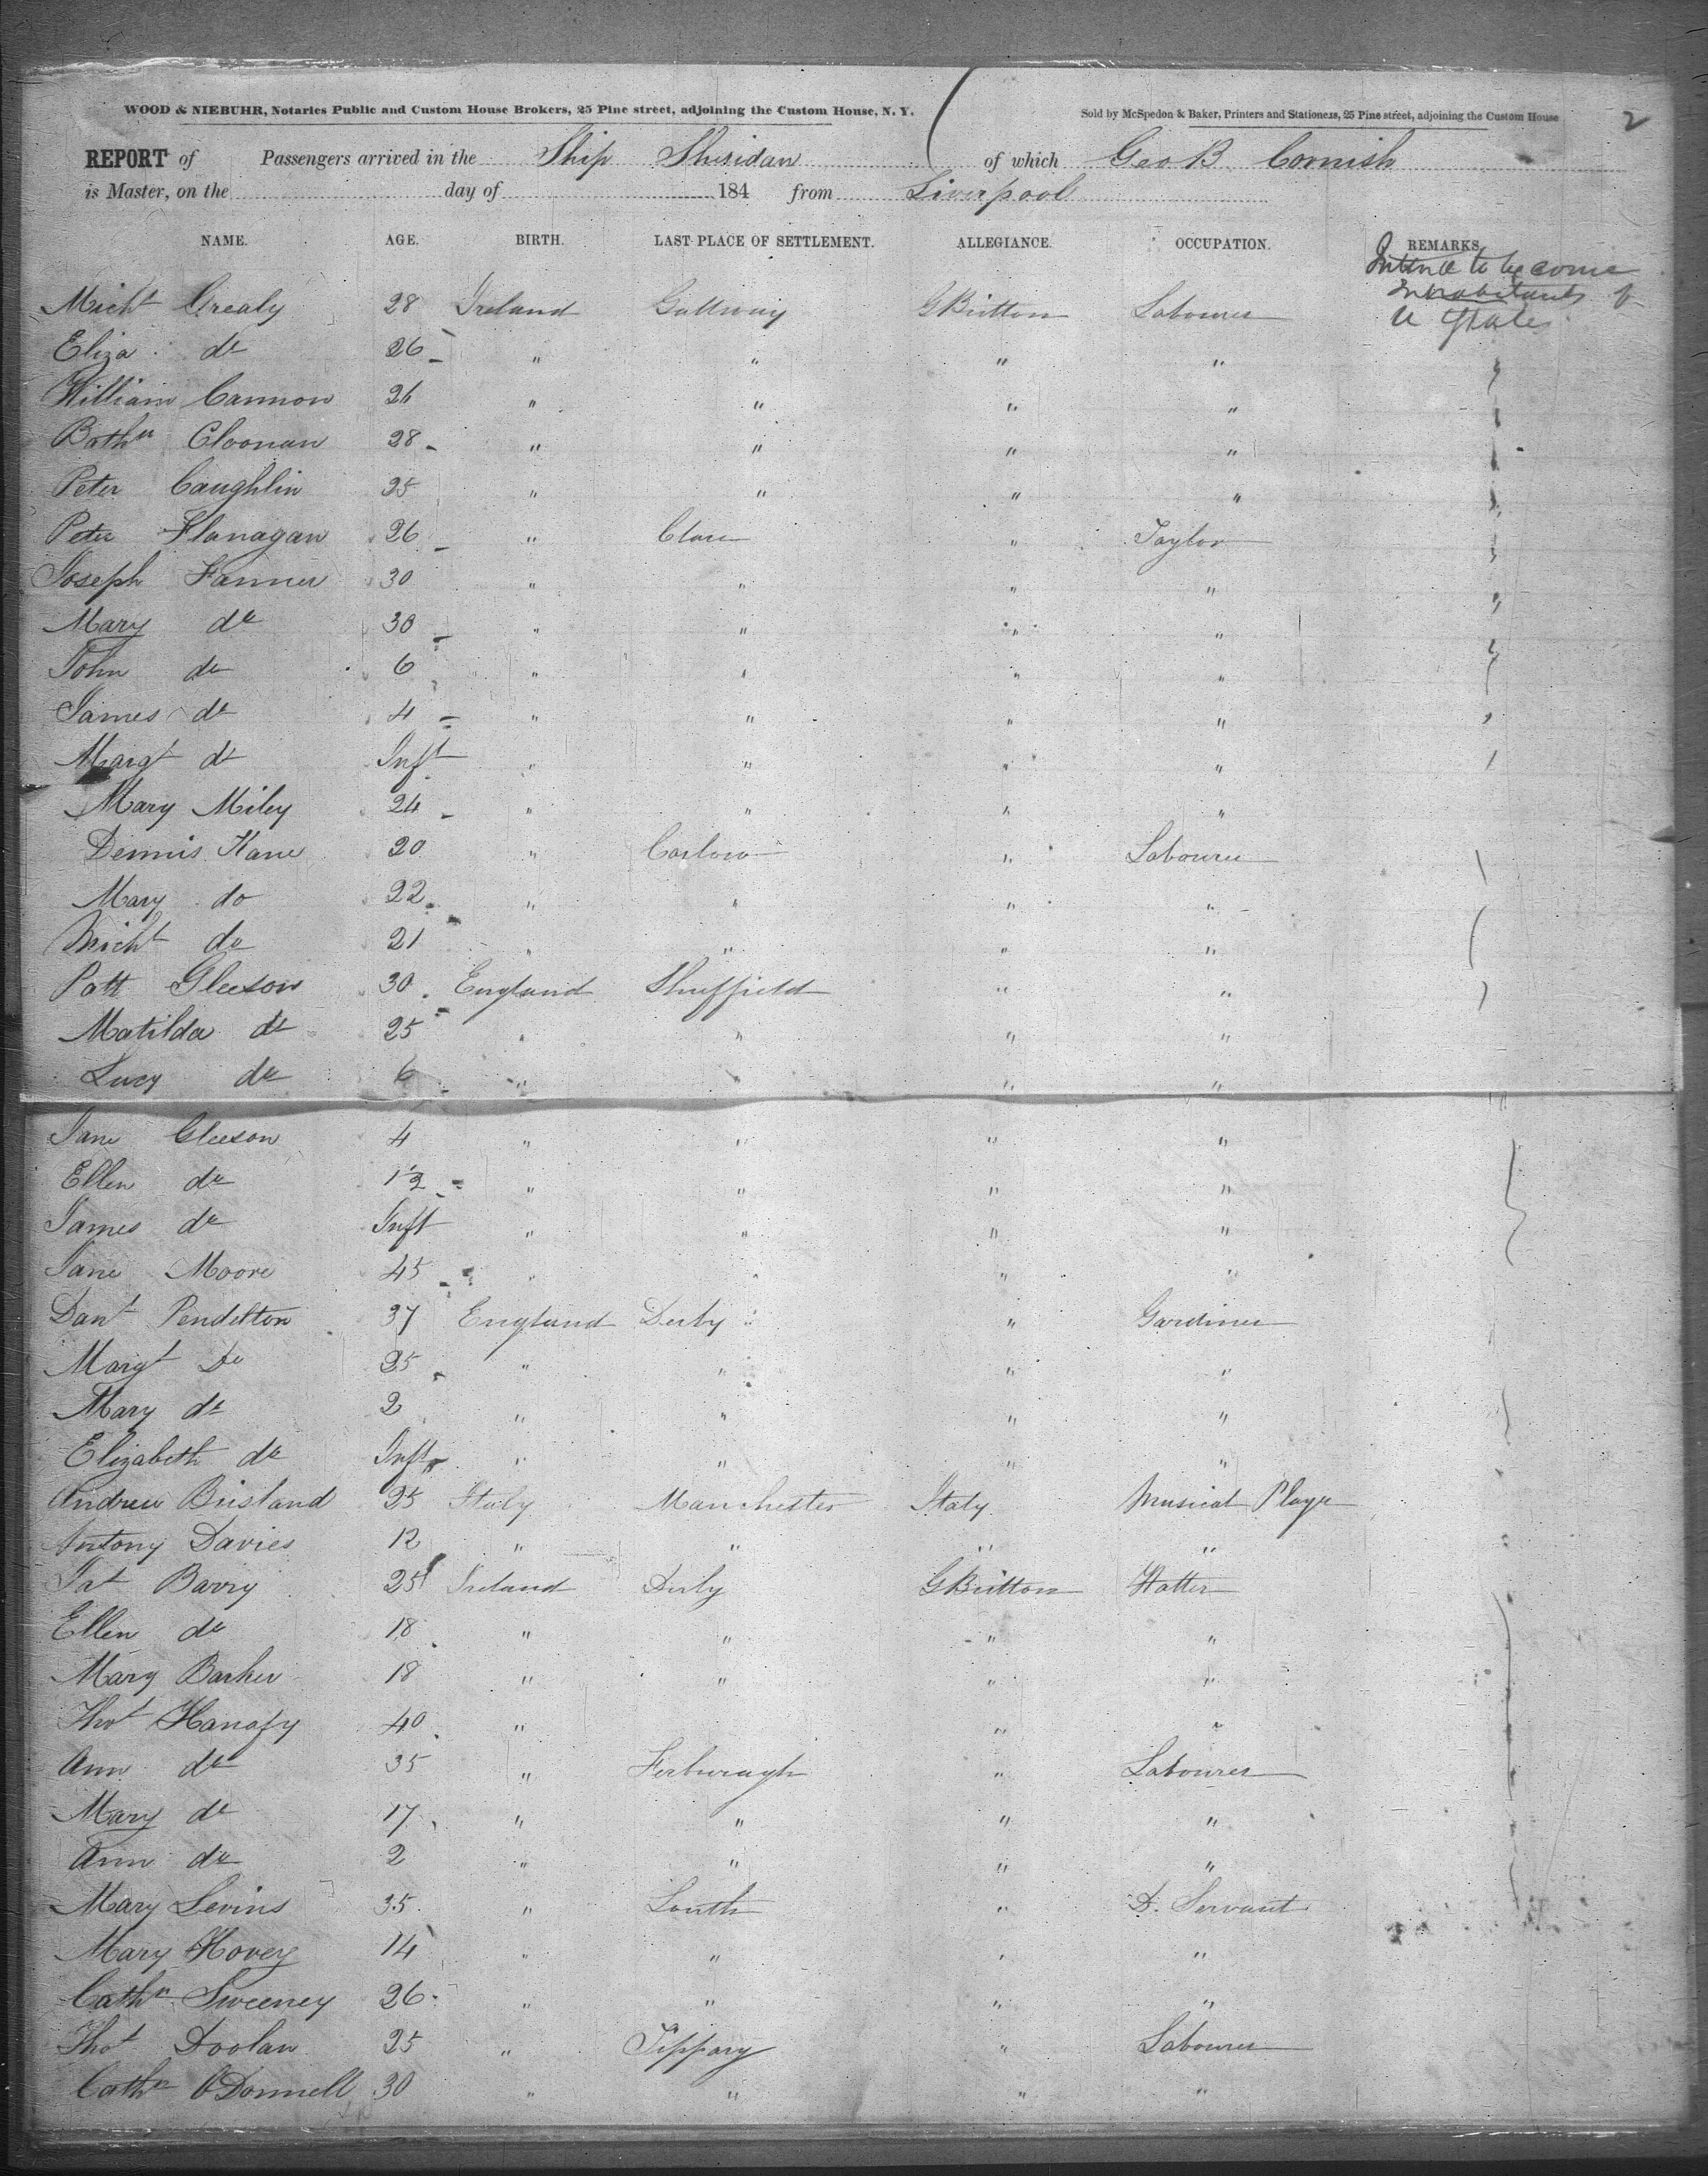 WOOD & NIEBUHR, Notaries Public and Custom House Brokers, 25 Pine street, adjoining the Custom House, N. Y.
Sold by McSpedon & Baker, Printers and Stationers, 25 Pine street, adjoining the Custom House
2
REPORT of Passengers arrived in the Ship Sheridan of which Geo B Cornish
is Master, on the day of 184 from Liverpool
NAME. AGE. BIRTH. LAST PLACE OF SETTLEMENT. ALLEGIANCE. OCCUPATION. REMARKS.
Intend to become
Inhabitants of
U States
Michl Grealy 28 Ireland Gallway GBritton Labourer
Eliza do 26 " " " "
William Cannon 26 " " " "
Barthw Cloonan 28 " " " "
Peter Caughlin 25 " " " "
Peter Flanagan 26 " Clare " Taylor
Joseph Fanner 30 " " " "
Mary do 30 " " " "
John do 6 " " " "
James do 4 " " " "
Margt do Inft " " " "
Mary Miley 24 " " " "
Dennis Kane 20 " Carlow " Labourer
Mary do 22 " " " "
Michl do 21 " " " "
Patt Gleeson 30 England Sheffield " "
Matilda do 25 " " " "
Lucy do 6 " " " "
Jane Gleeson 4 " " " "
Ellen do 1½ " " " "
James do Inft " " " "
Jane Moore 45 " " " "
Danl Pendelton 37 England Derby " Gardiner
Margt Do 25 " " " "
Mary do 2 " " " "
Elizabeth do Inft " " " "
Andrew Brisland 25 Italy Manchester Italy Musical Player
Antony Davies 12 " " " "
Pat Barry 25 Ireland Derby GBritton Hatter
Ellen do 18 " " " "
Mary Barker 18 " " " "
Thos Hanafy 40 " " "
Ann do 35 " " Labourer
Mary do 17 " " " "
Ann do 2 " " " "
Mary Levins 35 " Louth " D. Servant
Mary Hovey 14 " " " "
Cathn Sweeney 26 " " " "
Thos Doolan 25 " Tippary " Labourer
Cathn ODonnell 30 " " " "